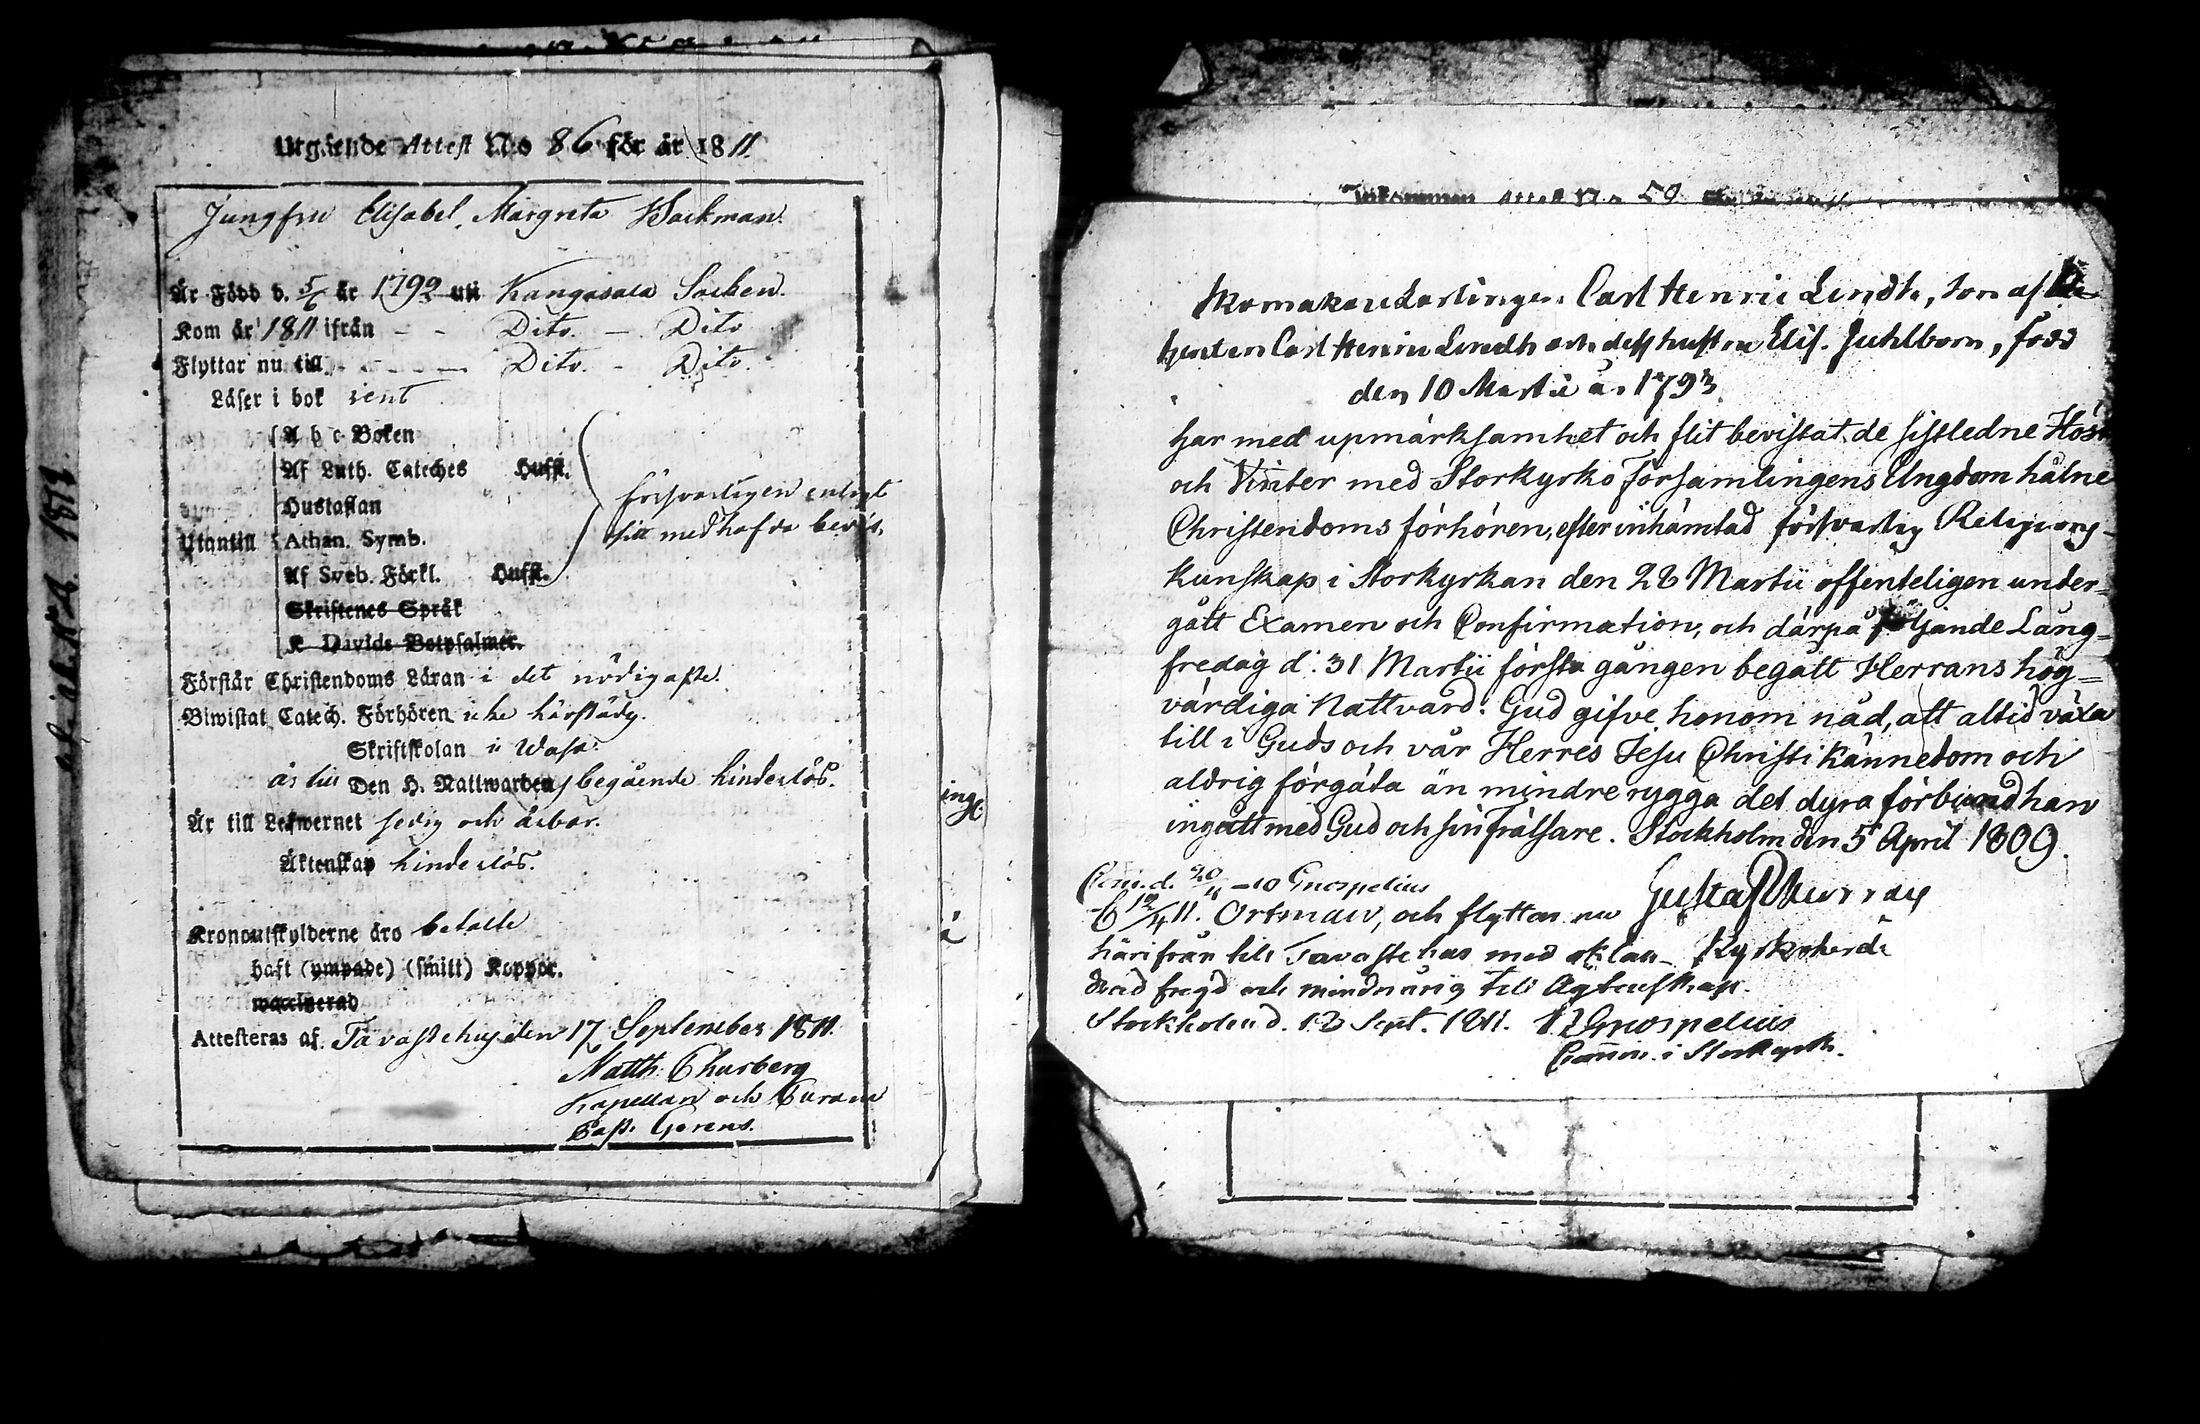 Utgående Attest No 86 för år 1811.
Jungfru Elisabet Margreta Backman.
Är Född d. 5/6 år 1792 uti Kangasala Socken.
Kom år 1811 ifrån - - Dito. - Dito
Flyttar nu till - - - Dito. - Dito.
Läser i bok rent
A b c Boken
Af Luth. Cateches Hufst.
Hustaflan
försvarligen enligt
sitt medhafde bevis.
Utantill Athan. Symb.
Af Sveb. Förkl. Hufst.
Skriftenes Språk
K. Davids Botpsalmer.
Förstår Christendoms Läran i det nödigaste.
Biwistat Catech. Förhören icke härstädes.
Skriftskolan i Wasa.
är till Den H. Nattwardens begående hinderlös.
Är till Lefwernet sedig och ärbar.
Äktenskap hinderlös.
Kronoutskylderne äro betalte
haft (ympade) (smitt) Koppor.
waccinerad
Attesteras af Tavastehus den 17 September 1811.
Matth. Churberg
Kapellan och Curam
Past. Gerens.
ing:
Inkommen Attest No 59
Carl Henric Lindh, son af
Carl Henric Lindh och dess hustru Elis. Juhlbom, född
den 10 Martii år 1793.
har med upmärksamhet och flit bevistat de sistledne Höst
och Vinter med Storkyrko Församlingens Ungdom hålne
Christendoms förhören, efter inhämtad försvarlig Religions-
kunskap i Storkyrkan den 28 Martii offenteligen under=
gått Examen och Confirmation, och därpå följande Lång=
fredag d. 31 Martii första gången begått Herrans hög=
värdiga Nattvard. Gud gifve honom nåd, att altid växa
till i Guds och vår Herres Jesu Christi kännedom och
aldrig förgäta än mindre rygga det dyra förbund han
ingått med Gud och sin Frälsare. Stockholm den 5 April 1809.
Com. d. 20/4 -10 Gnospelius
C 12/4 11. Ortman, och flyttar nu
Gustaf Murray
härifrån till Tavastehus med oklan-
Kyrkoherde
drad fregd och mindreårig till Ägtenskap.
Stockholm d. 13 Sept. 1811. Gnospelius
Comm. i Storkyrk.